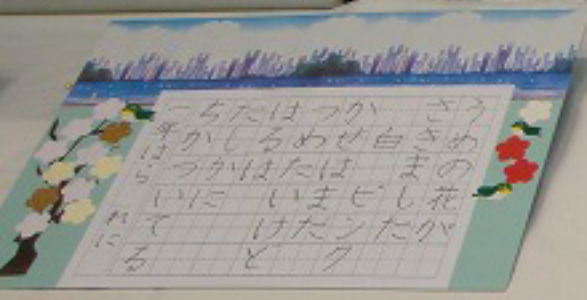 うめの花が
さきました
白 ピンク
かぜはまだ
つめたいけど
はるは
たしかに
ちかづいている
一年